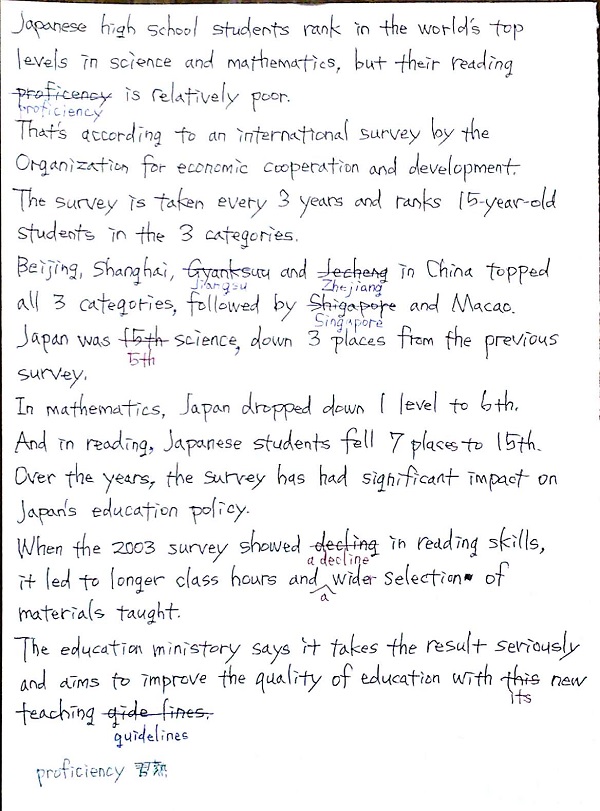 Japanese high school students rank in the world's top
levels in science and mathematics, but their reading
proficency is relatively poor.
proficiency
That's according to an international survey by the
Organization for economic cooperation and development.
The survey is taken every 3 years and ranks 15-year-old
students in the 3 categories.
Beijing, Shanghai, Gyanksuu and Jecheng in China topped
Jiangsu Zhejiang
all 3 categories, followed by Shigapore and Macao.
Singapore
Japan was f5th science, down 3 places from the previous
5th
survey.
In mathematics, Japan dropped down 1 level to 6th.
And in reading, Japanese students fell 7 places to 15th.
Over the years, the survey has had significant impact on
Japan's education policy.
When the 2003 survey showed decling in reading skills,
a decline
it led to longer class hours and wider selection of
a
materials taught.
The education ministory says it takes the result seriously
and aims to improve the quality of education with this new
its
teaching gide lines.
guidelines
proficiency 習熟